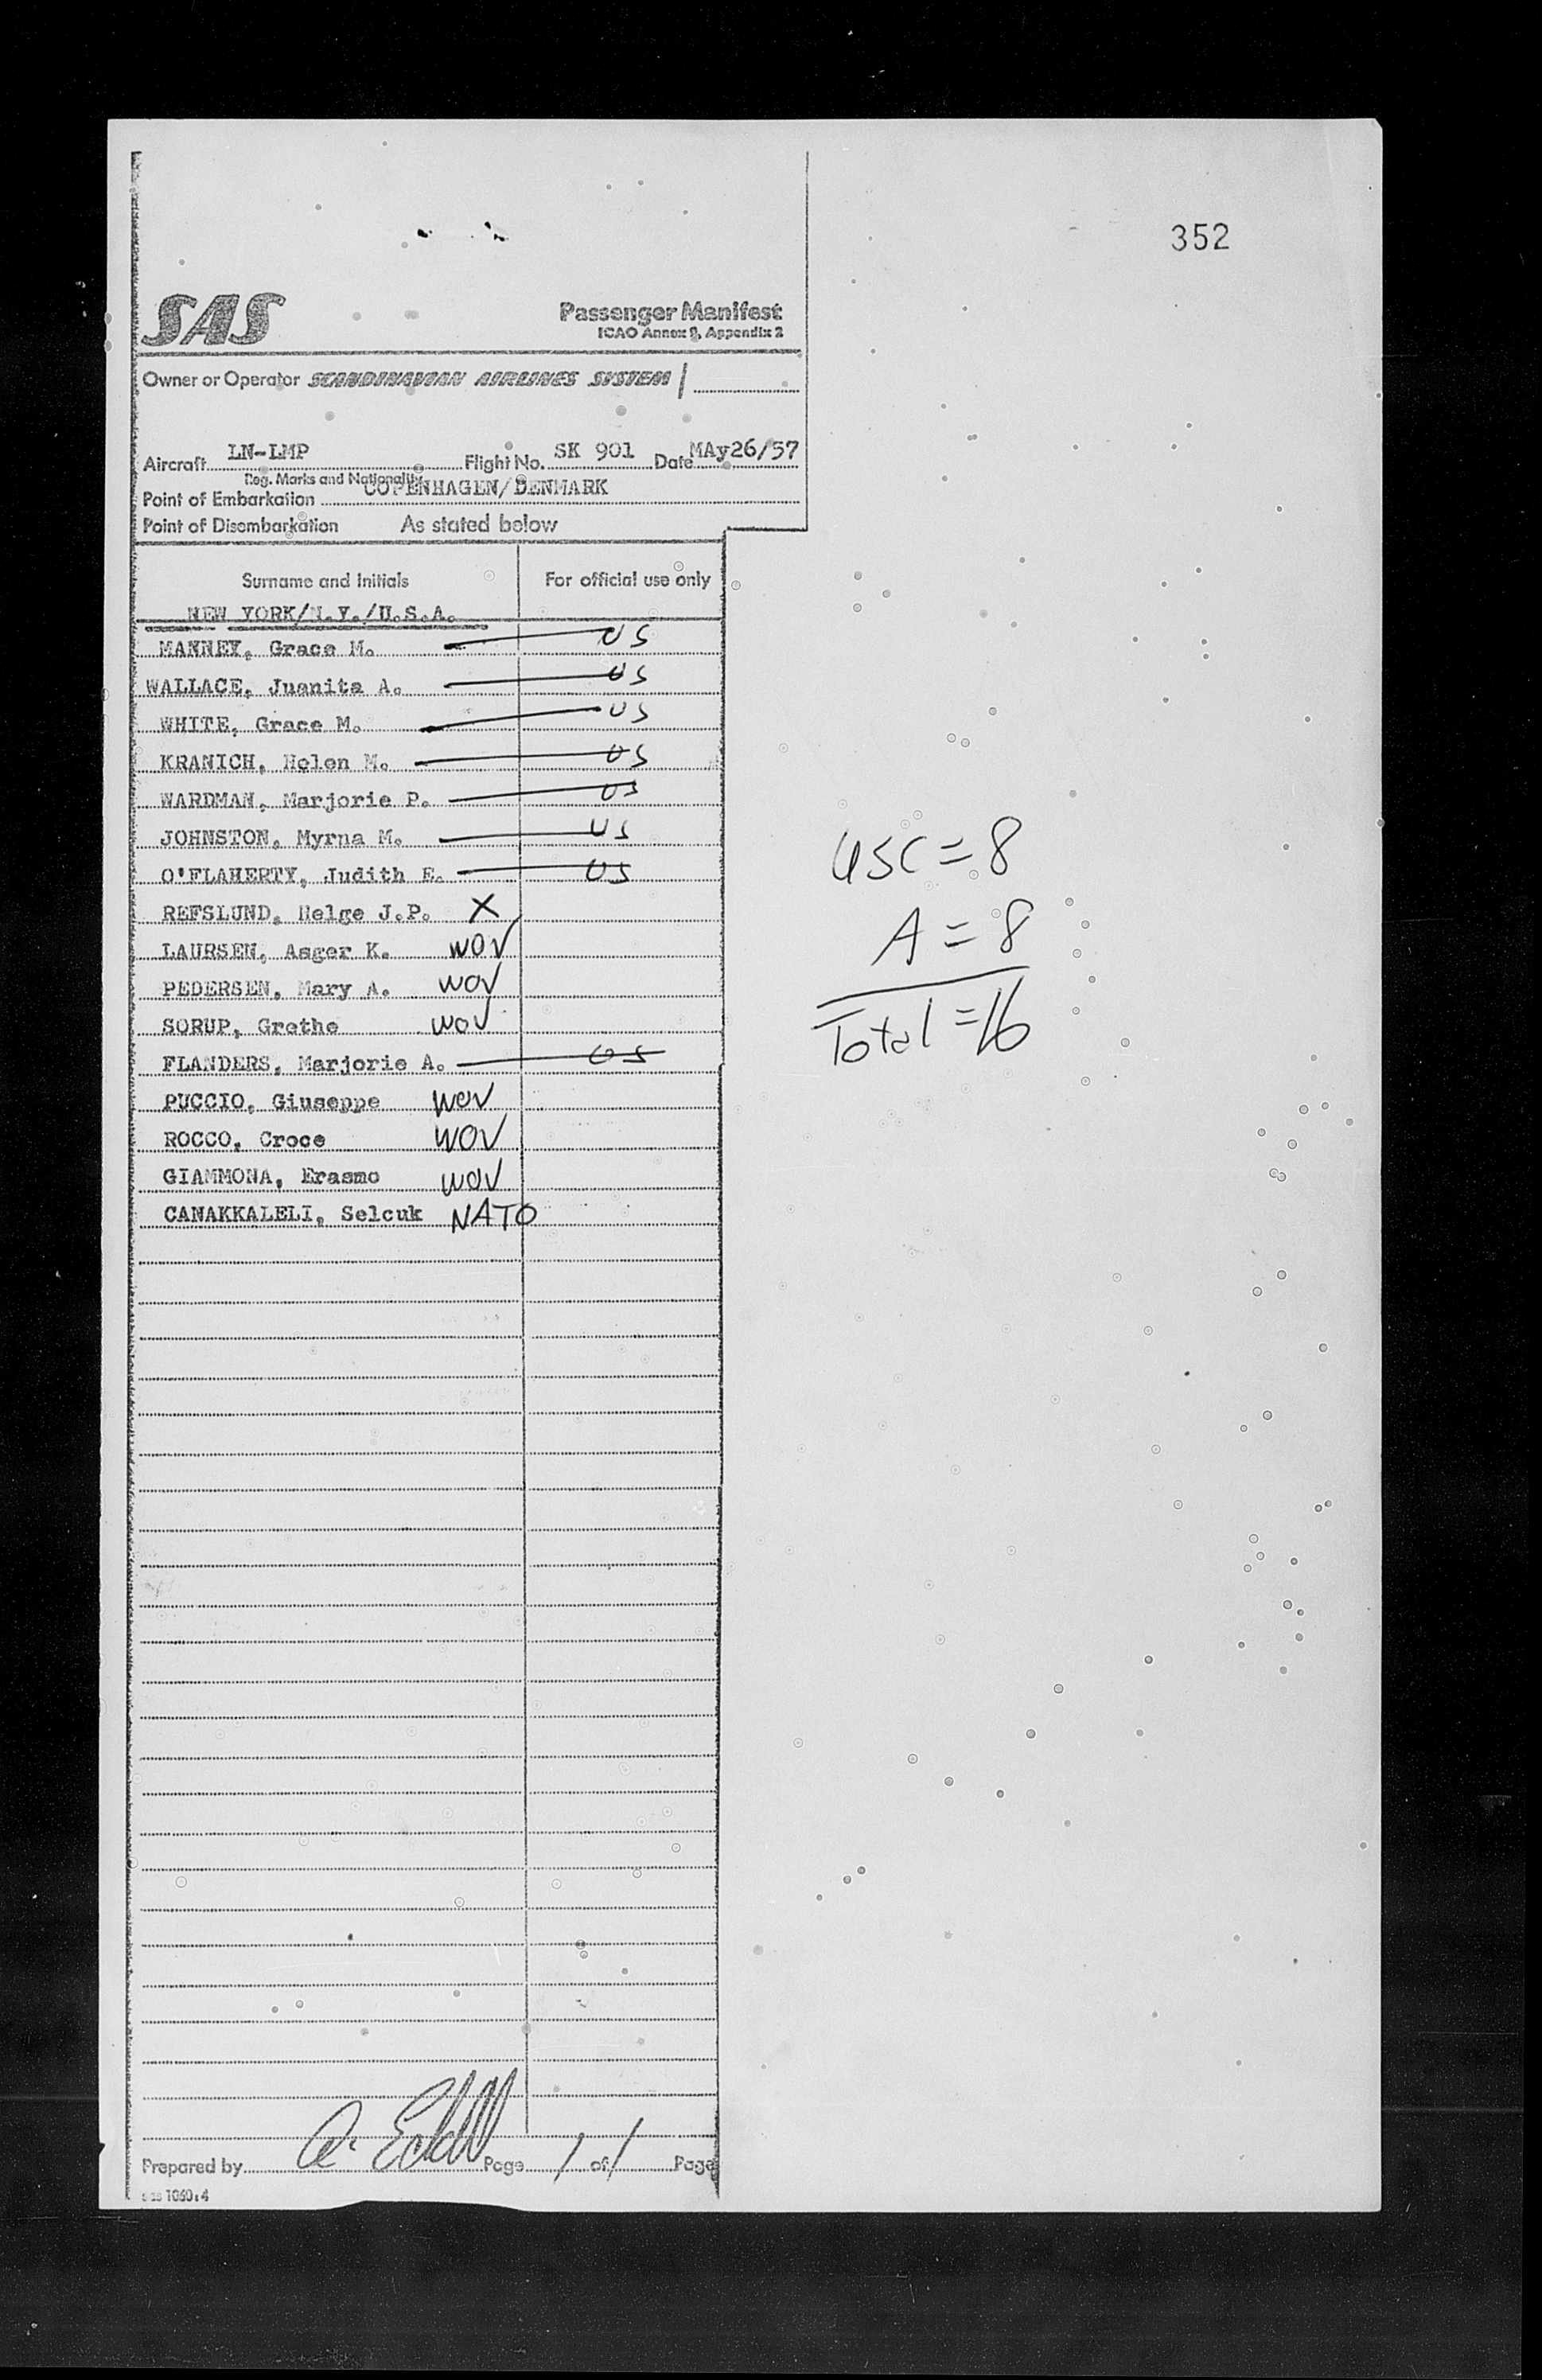 352
SAS
Passenger Manifest
ICAO Annex 9, Appendix 2
Owner or Operator SCANDINAVIAN AIRLINES SYSTEM
Aircraft LN-LMP Flight No. SK 901 Date MAy26/57
Reg. Marks and Nationality
Point of Embarkation COPENHAGEN/DENMARK
Point of Disembarkation As stated below
Surname and Initials For official use only
NEW YORK/N.Y./U.S.A.
MANNEY, Grace M. US
WALLACE, Juanita A. US
WHITE, Grace M. US
KRANICH, Helen M. US
WARDMAN, Marjorie P. US
JOHNSTON, Myrna M. US
O'FLAHERTY, Judith E. US
REFSLUND, Helge J.P. X
LAURSEN, Asger K. WOV
PEDERSEN, Mary A. WOV
SORUP, Grethe WOV
FLANDERS, Marjorie A. US
PUCCIO, Giuseppe WOV
ROCCO, Croce WOV
GIAMMONA, Erasmo WOV
CANAKKALELI, Selcuk NATO
USC = 8
A = 8
Total = 16
Prepared by Page 1 of 1 Page
SAS 1060:4